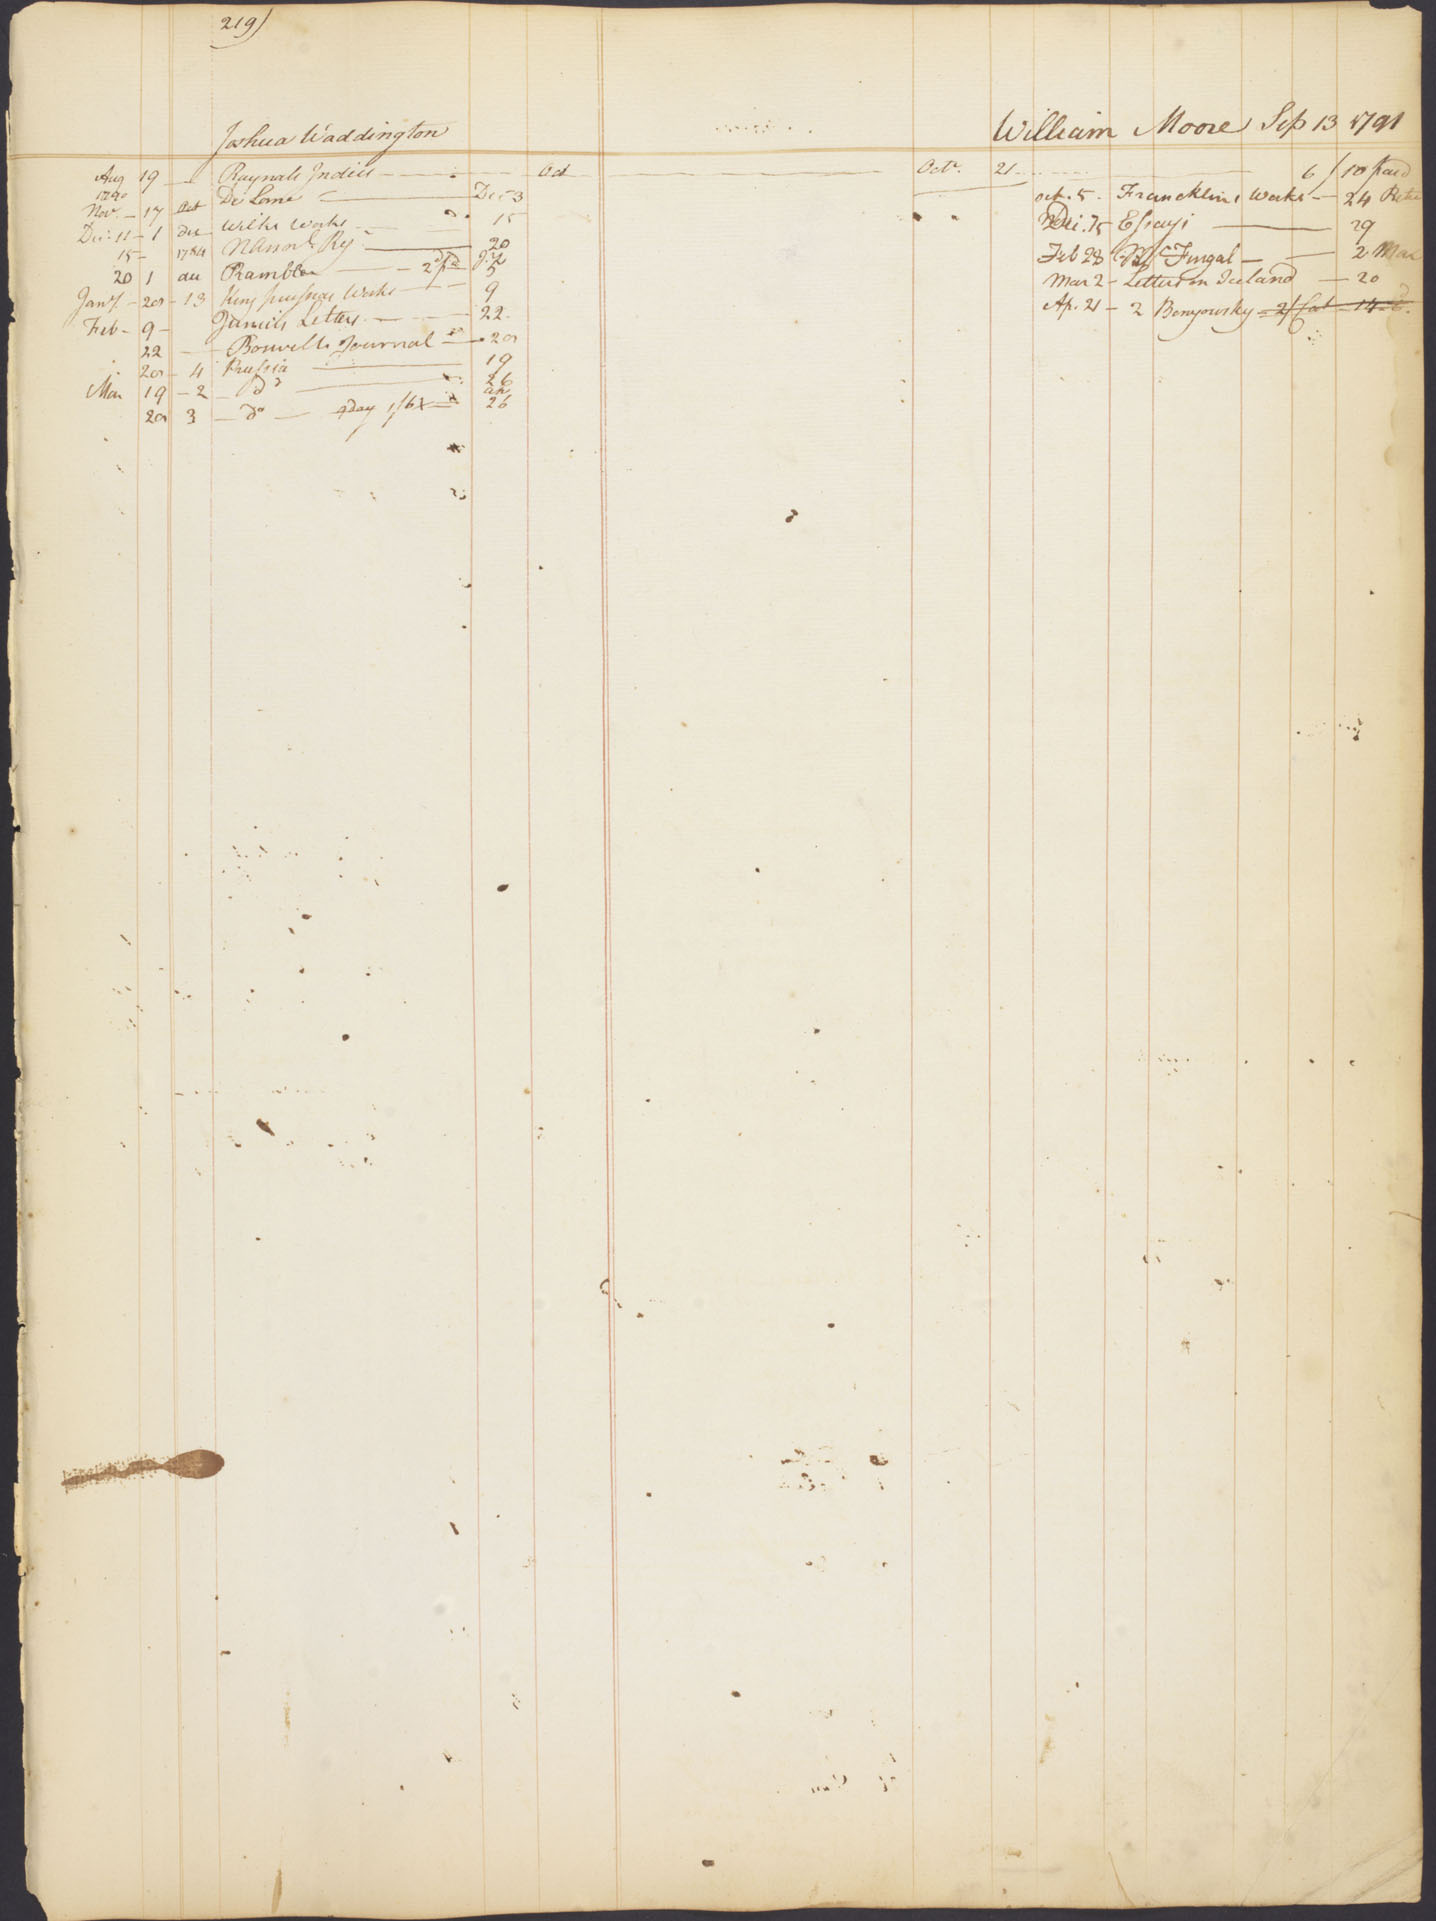 219)
Joshua Waddington
Aug 19 — Raynals Indies — Oct
1790
Nov. — 17 Oct De Lome — Dec 3
Dec. 11 — 1 do Wilks Works — 15
15 — 1784 Nannl. Reg — 20
20 1 do Rambler — 2/ pd 5
Jany. — 20 — 13 King prussias Works — 9
Feb — 9 — Junius Letters — 22
22 — Boswells Journal — 20
20 — 4 Prussia — 19
Mar 19 — 2 — do — 26
20 3 — do — 9 day 1/6 — ap 26
William Moore Sep 13 1791
Octr. 21 6/ 10 paid
oct. 5 — Francklins Works — 24
Dec. 15 Essays — 29
Feb 28 McFingal — 2 Mar
Mar 2 — Letters on Iceland — 20
Ap. 21 — 2 Benyowsky